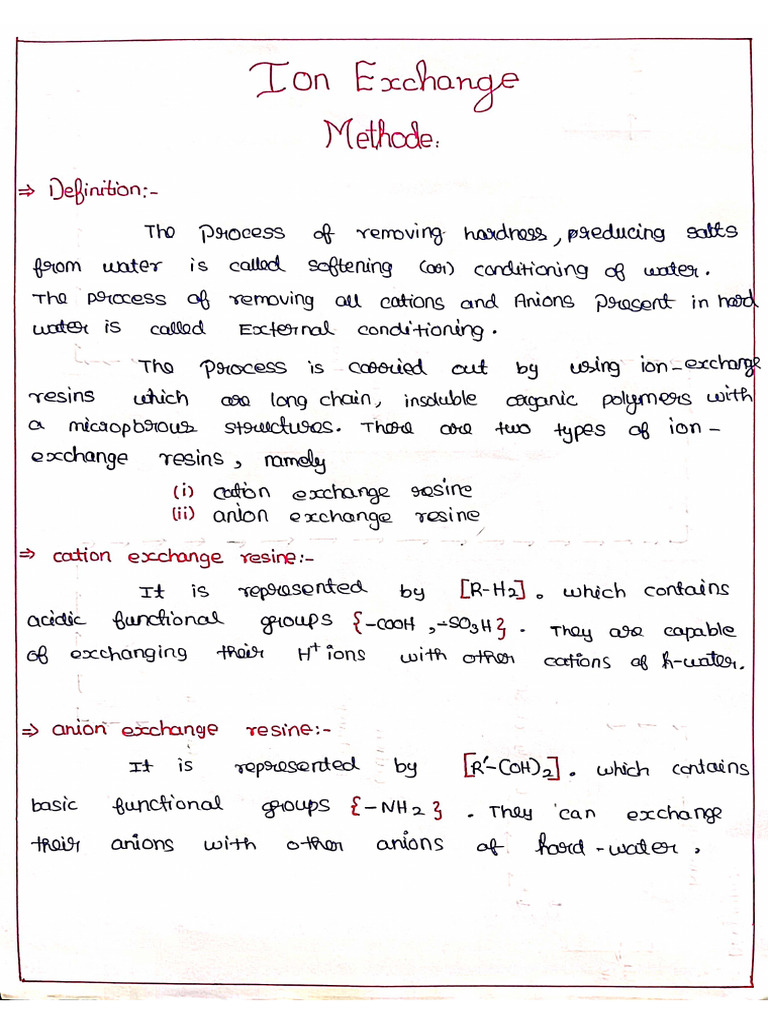 Ion Exchange
Methode:
⇒ Definition:-
The process of removing hardness, preducing salts
from water is called softening (or) conditioning of water.
The process of removing all cations and Anions present in hard
water is called External conditioning.
The process is carried out by using ion-exchange
resins which are long chain, insoluble organic polymers with
a microporous structures. There are two types of ion-
exchange resins, namely
(i) cation exchange resine
(ii) anion exchange resine
⇒ cation exchange resine:-
It is represented by [R-H2]. which contains
acidic functional groups {-COOH, -SO3H}. They are capable
of exchanging their H+ ions with other cations of h-water.
⇒ anion exchange resine:-
It is represented by [R'-(OH)2]. which contains
basic functional groups {-NH2}. They can exchange
their anions with other anions of hard-water.